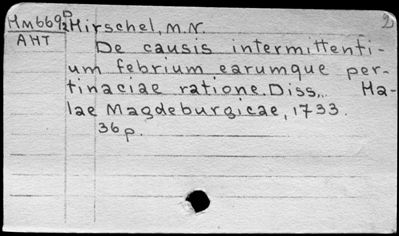 Mm6692 D Hirschel, M.N. 2
AHT
De causis intermittenti-
um febrium earumque per-
tinaciae ratione. Diss... Ha-
lae Magdeburgicae, 1733.
36p.